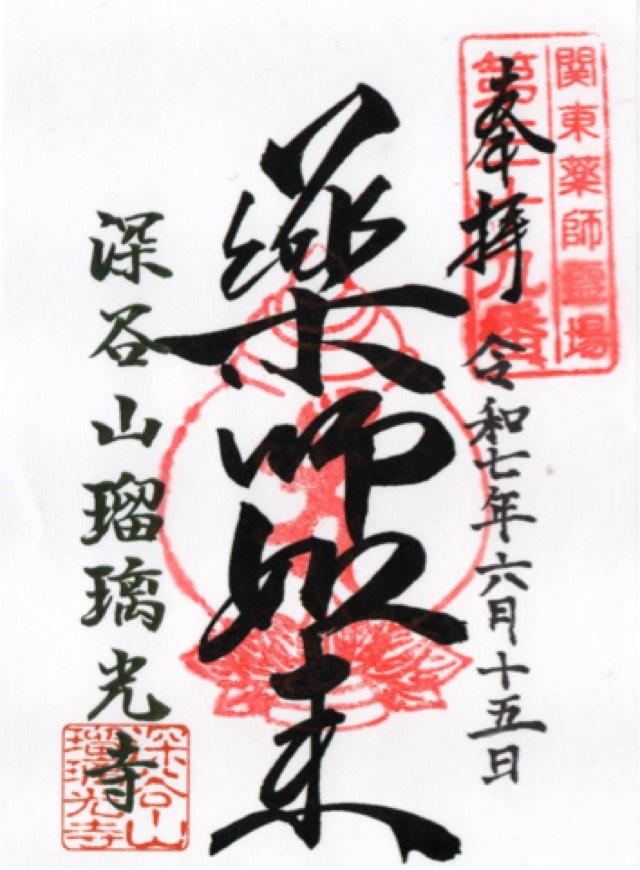 関東薬師霊場
第三十九番
奉拝 令和七年六月十五日
薬師如来
深谷山瑠璃光寺
深谷山
瑠璃光寺